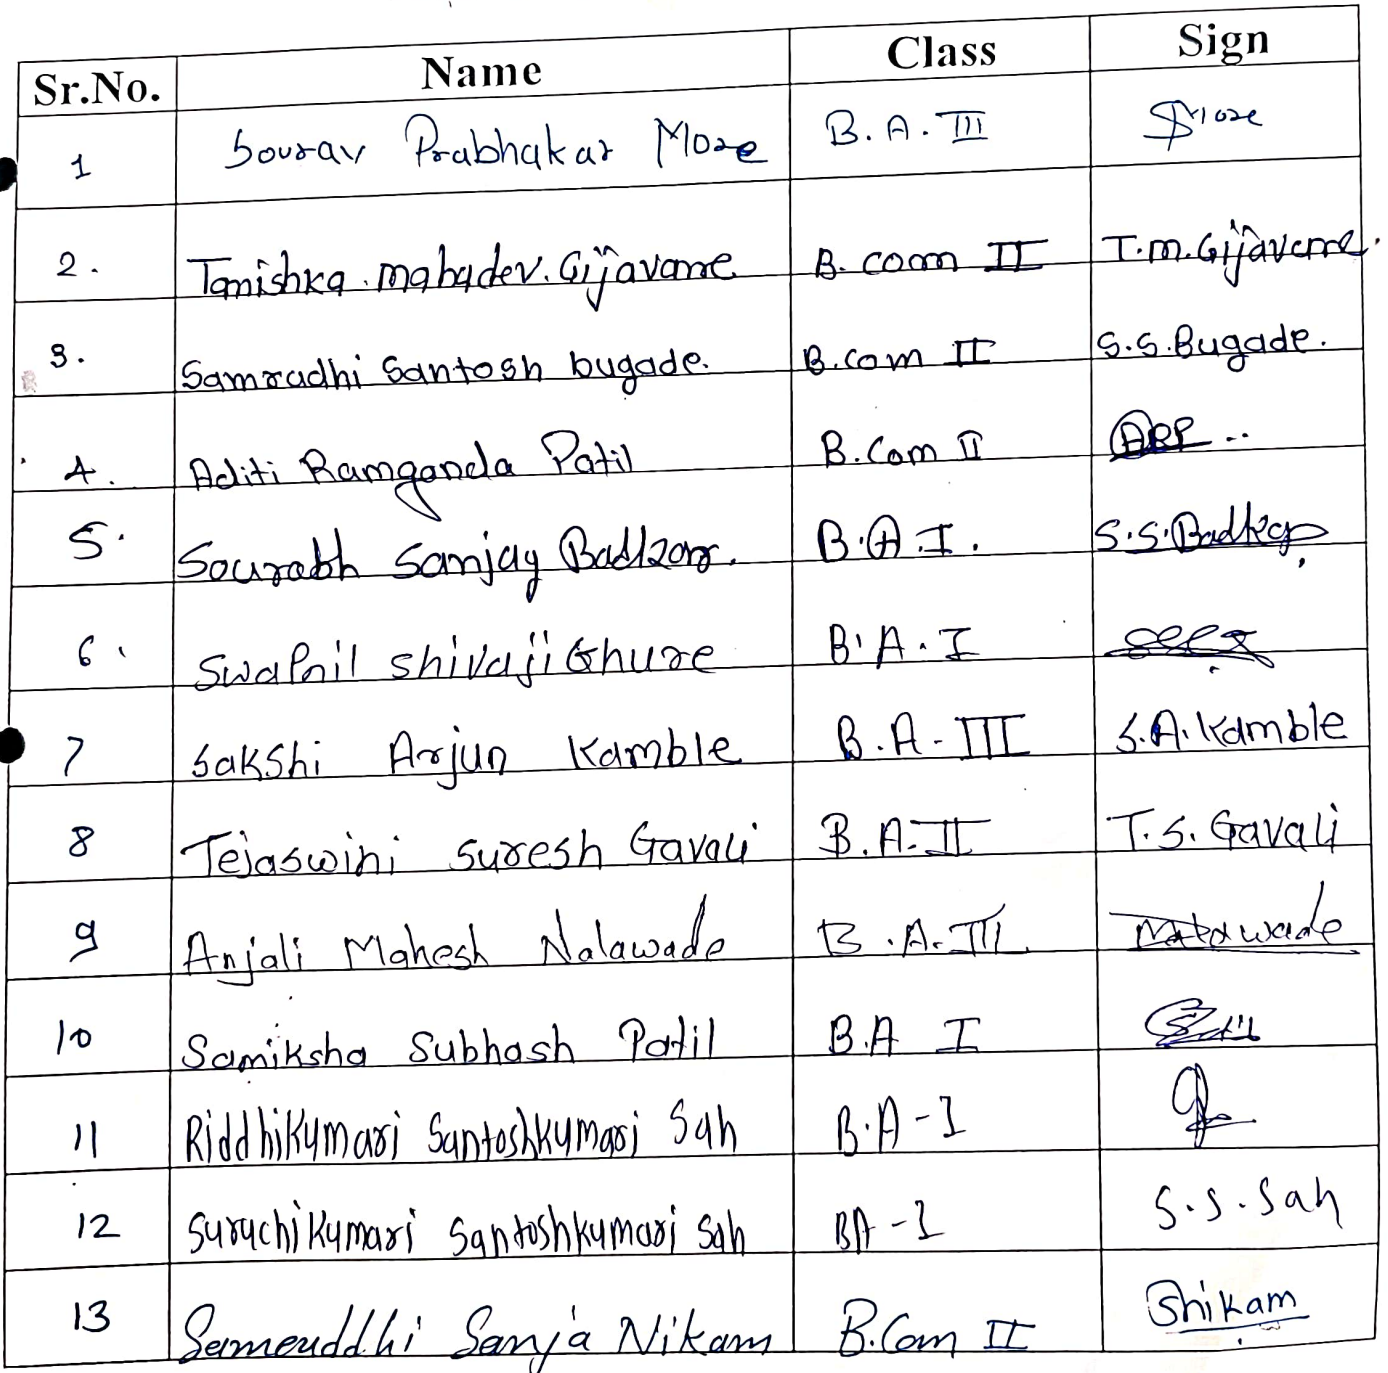 Sr.No. Name Class Sign
1 Sourav Prabhakar More B.A.III More
2. Tanishka.mahadev.Gijavane B.com II T.m.Gijavane.
3. Samradhi Santosh bugade. B.com II S.S.Bugade.
4. Aditi Ramgonda Patil B.Com II ARP..
5. Sourabh Sanjay Badkar. B.A.I. S.S.Badkar
6. Swapnil shivaji Ghure B.A.I
7 Sakshi Arjun Kamble B.A-III S.A.Kamble
8 Tejaswini suresh Gavali B.A.II T.S.Gavali
9 Anjali Mahesh Nalawade B.A.III Nalawade
10 Samiksha Subhash Patil B.A I
11 RiddhiKumari Santoshkumari Sah B.A-I
12 SuruchiKumari Santoshkumari Sah BA-I S.S.Sah
13 Samruddhi Sanja Nikam B.Com II Shikam